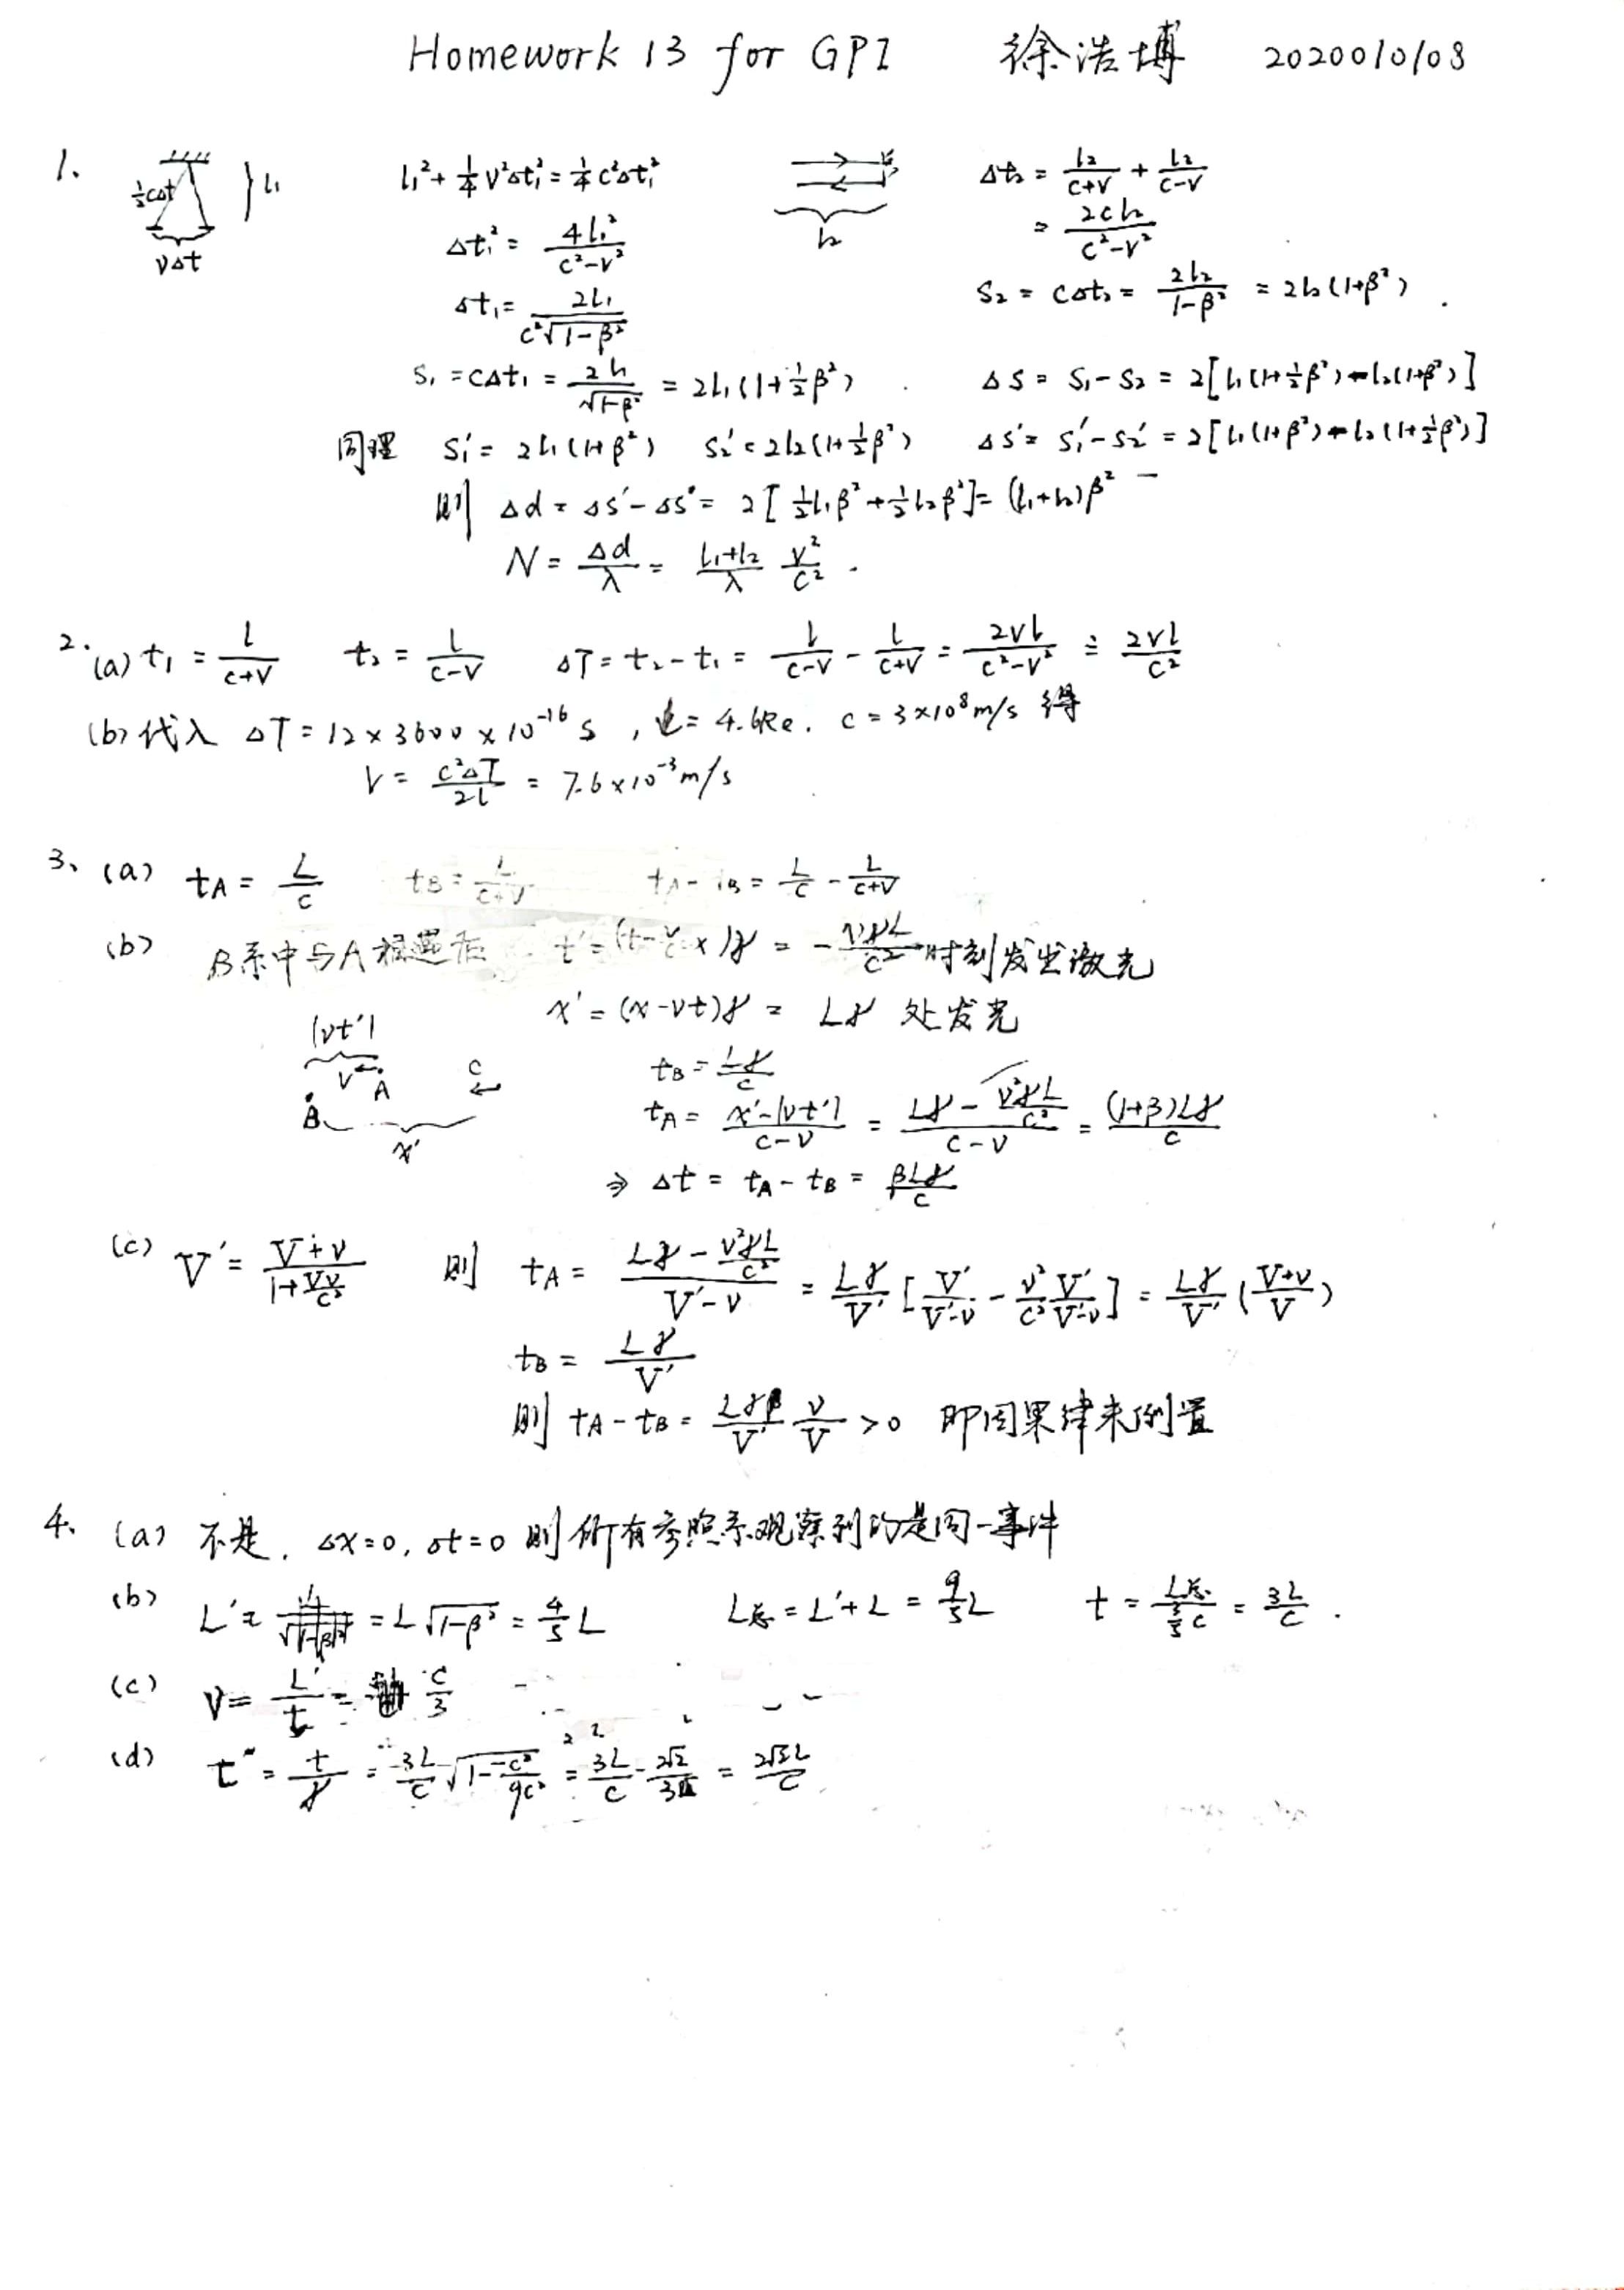 Homework 13 for GPI 徐浩博 2020010108
1. ½cΔt } l₁ vΔt
l₁² + ¼v²Δt₁² = ¼c²Δt₁² l₂ Δt₂ = l₂/(c+v) + l₂/(c-v)
Δt₁² = 4l₁²/(c²-v²) = 2cl₂/(c²-v²)
Δt₁ = 2l₁/(c²√(1-β²)) S₂ = cΔt₂ = 2l₂/(1-β²) = 2l₂(1+β²).
S₁ = cΔt₁ = 2l₁/√(1-β²) = 2l₁(1+½β²). ΔS = S₁-S₂ = 2[l₁(1+½β²)-l₂(1+β²)]
同理 S₁' = 2l₁(1+β²) S₂' = 2l₂(1+½β²) ΔS' = S₁'-S₂' = 2[l₁(1+β²)-l₂(1+½β²)]
则 Δd = ΔS'-ΔS = 2[½l₁β²+½l₂β²] = (l₁+l₂)β²
N = Δd/λ = (l₁+l₂)/λ v²/c².
2.(a) t₁ = l/(c+v) t₂ = l/(c-v) ΔT = t₂-t₁ = l/(c-v) - l/(c+v) = 2vl/(c²-v²) ≐ 2vl/c²
(b) 代入 ΔT = 12×3600×10⁻¹⁶ s, l = 4.6Re. c = 3×10⁸ m/s 得
v = c²ΔT/2l = 7.6×10⁻³ m/s
3、(a) tA = L/c tB = L/(c+v) tA-tB = L/c - L/(c+v)
(b) B系中与A相遇后 t' = (t-v/c x)γ = -vγL/c² 时刻发出激光
x' = (x-vt)γ = Lγ 处发光
|vt'| v A c B x'
tB = Lγ/c
tA = (x'-|vt'|)/(c-v) = (Lγ - v²γL/c²)/(c-v) = (1+β)Lγ/c
⇒ Δt = tA-tB = βLγ/c
(c) V' = (V+v)/(1+Vv/c²) 则 tA = (Lγ - v²γL/c²)/(V'-v) = Lγ/V' [V'/(V'-v) - v²/c² V'/(V'-v)] = Lγ/V' ((V+v)/V)
tB = Lγ/V'
则 tA-tB = Lγ/V' v/V > 0 即因果律未倒置
4、(a) 不是. Δx=0, Δt=0 则所有参照系观察到的是同一事件
(b) L' = L√(1-β²) = 4/5 L L总 = L'+L = 9/5 L t = L总/(3/5 c) = 3L/c.
(c) v = L'/t = c/3
(d) t'' = t/γ = 3L/c √(1-c²/9c²) = 3L/c · 2√2/3 = 2√2L/c